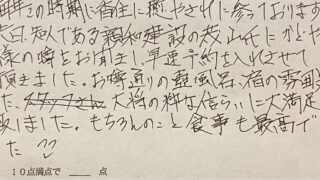 毎年この時期に宿主に癒やされに参っております
知人である親和建設の茂山氏にかどや
様の噂をお聞きし、早速予約を入れさせて
頂きました。お噂通りの重風呂、宿の雰囲気
大将の粋な信らいに大満足
致しました。もちろんのこと食事も最高で
た
10点満点で ___ 点